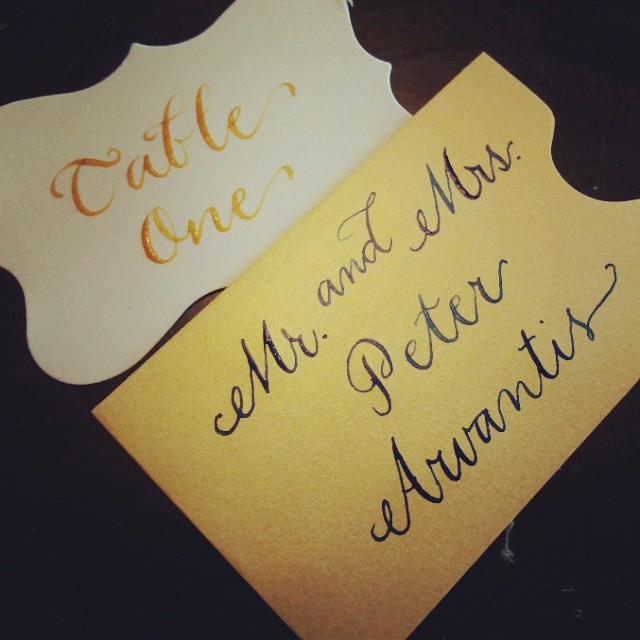 Table
One
Mr. and Mrs.
Peter
Arvantis